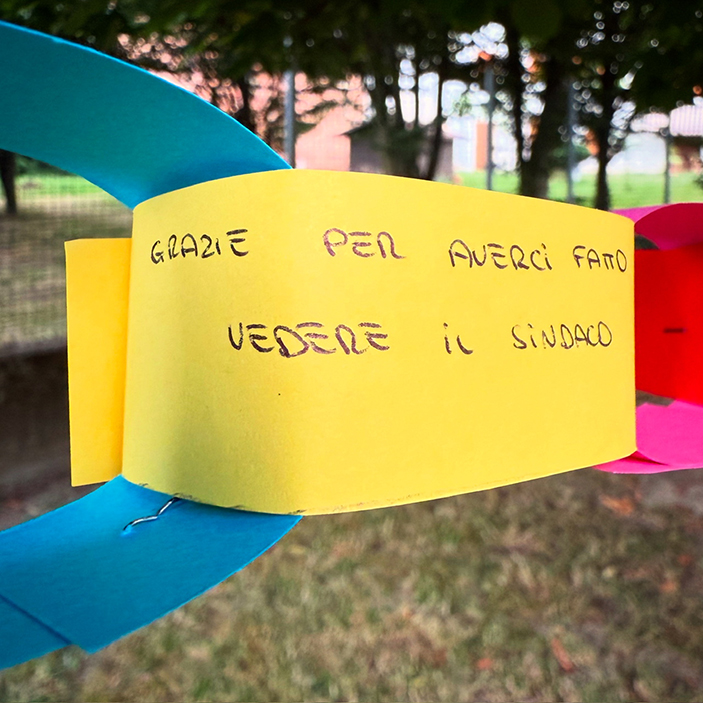 GRAZIE PER AVERCi FATTO
VEDERE iL SiNDACO